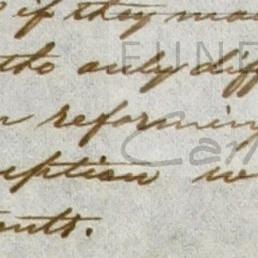 if they ma
the only diff
reforming
eption w
ents.
FUNE
Cam